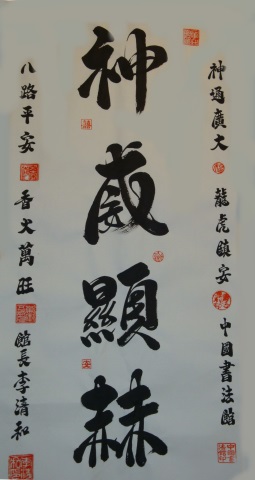 神通廣大 龍虎鎮安 中國書法館
神威顯赫
八路平安 香火萬旺 館長李清和